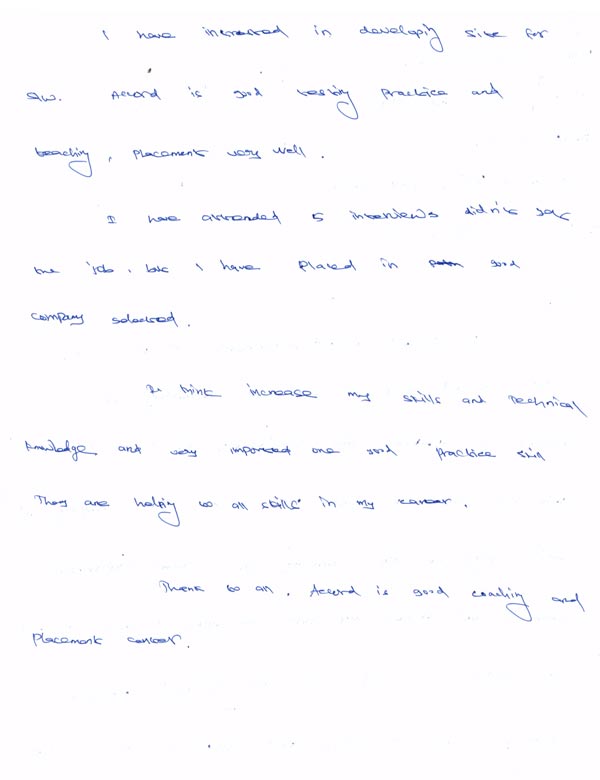 I have increased in developing site for
S/W. Accord is good testing practice and
teaching, placement very well.
I have attended 5 interviews didn't got
the job, but I have placed in good
company selected.
think increase my skills and Technical
knowledge and very important one good "practice skill
They are helping to all skills" in my career.
Thank to all. Accord is good coaching and
placement center.